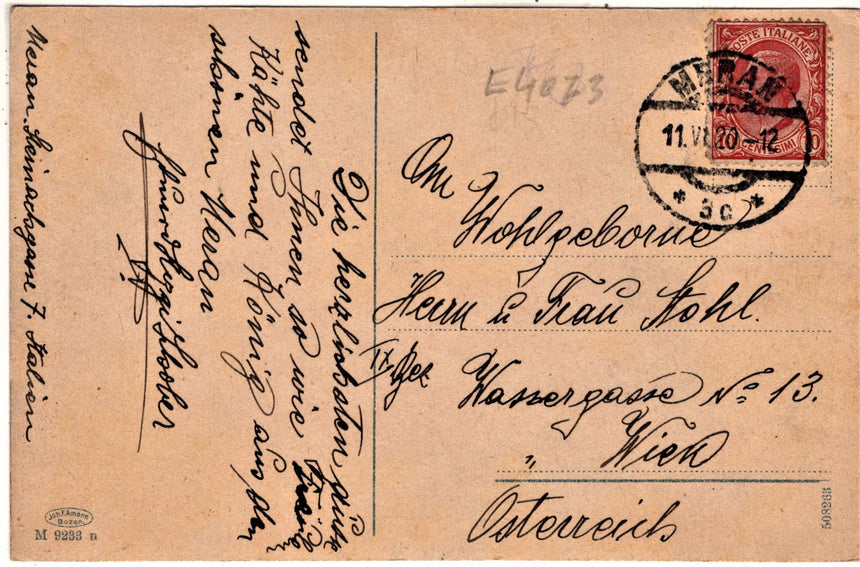 Die herzlichsten Grüße
sendet Ihnen so wie
Käthe und König aus den
schönen Meran
Meran. Steinachgasse 7. Italien
E4073
POSTE ITALIANE
CENTESIMI 10
MERAN
11.VI.20-12
* 3c *
An
Wohlgeborne
Herrn u Frau Stohl.
IX Bez Wassergasse No 13.
" Wien
Österreich
Joh.F.Amonn
Bozen.
M 9233 n
508263